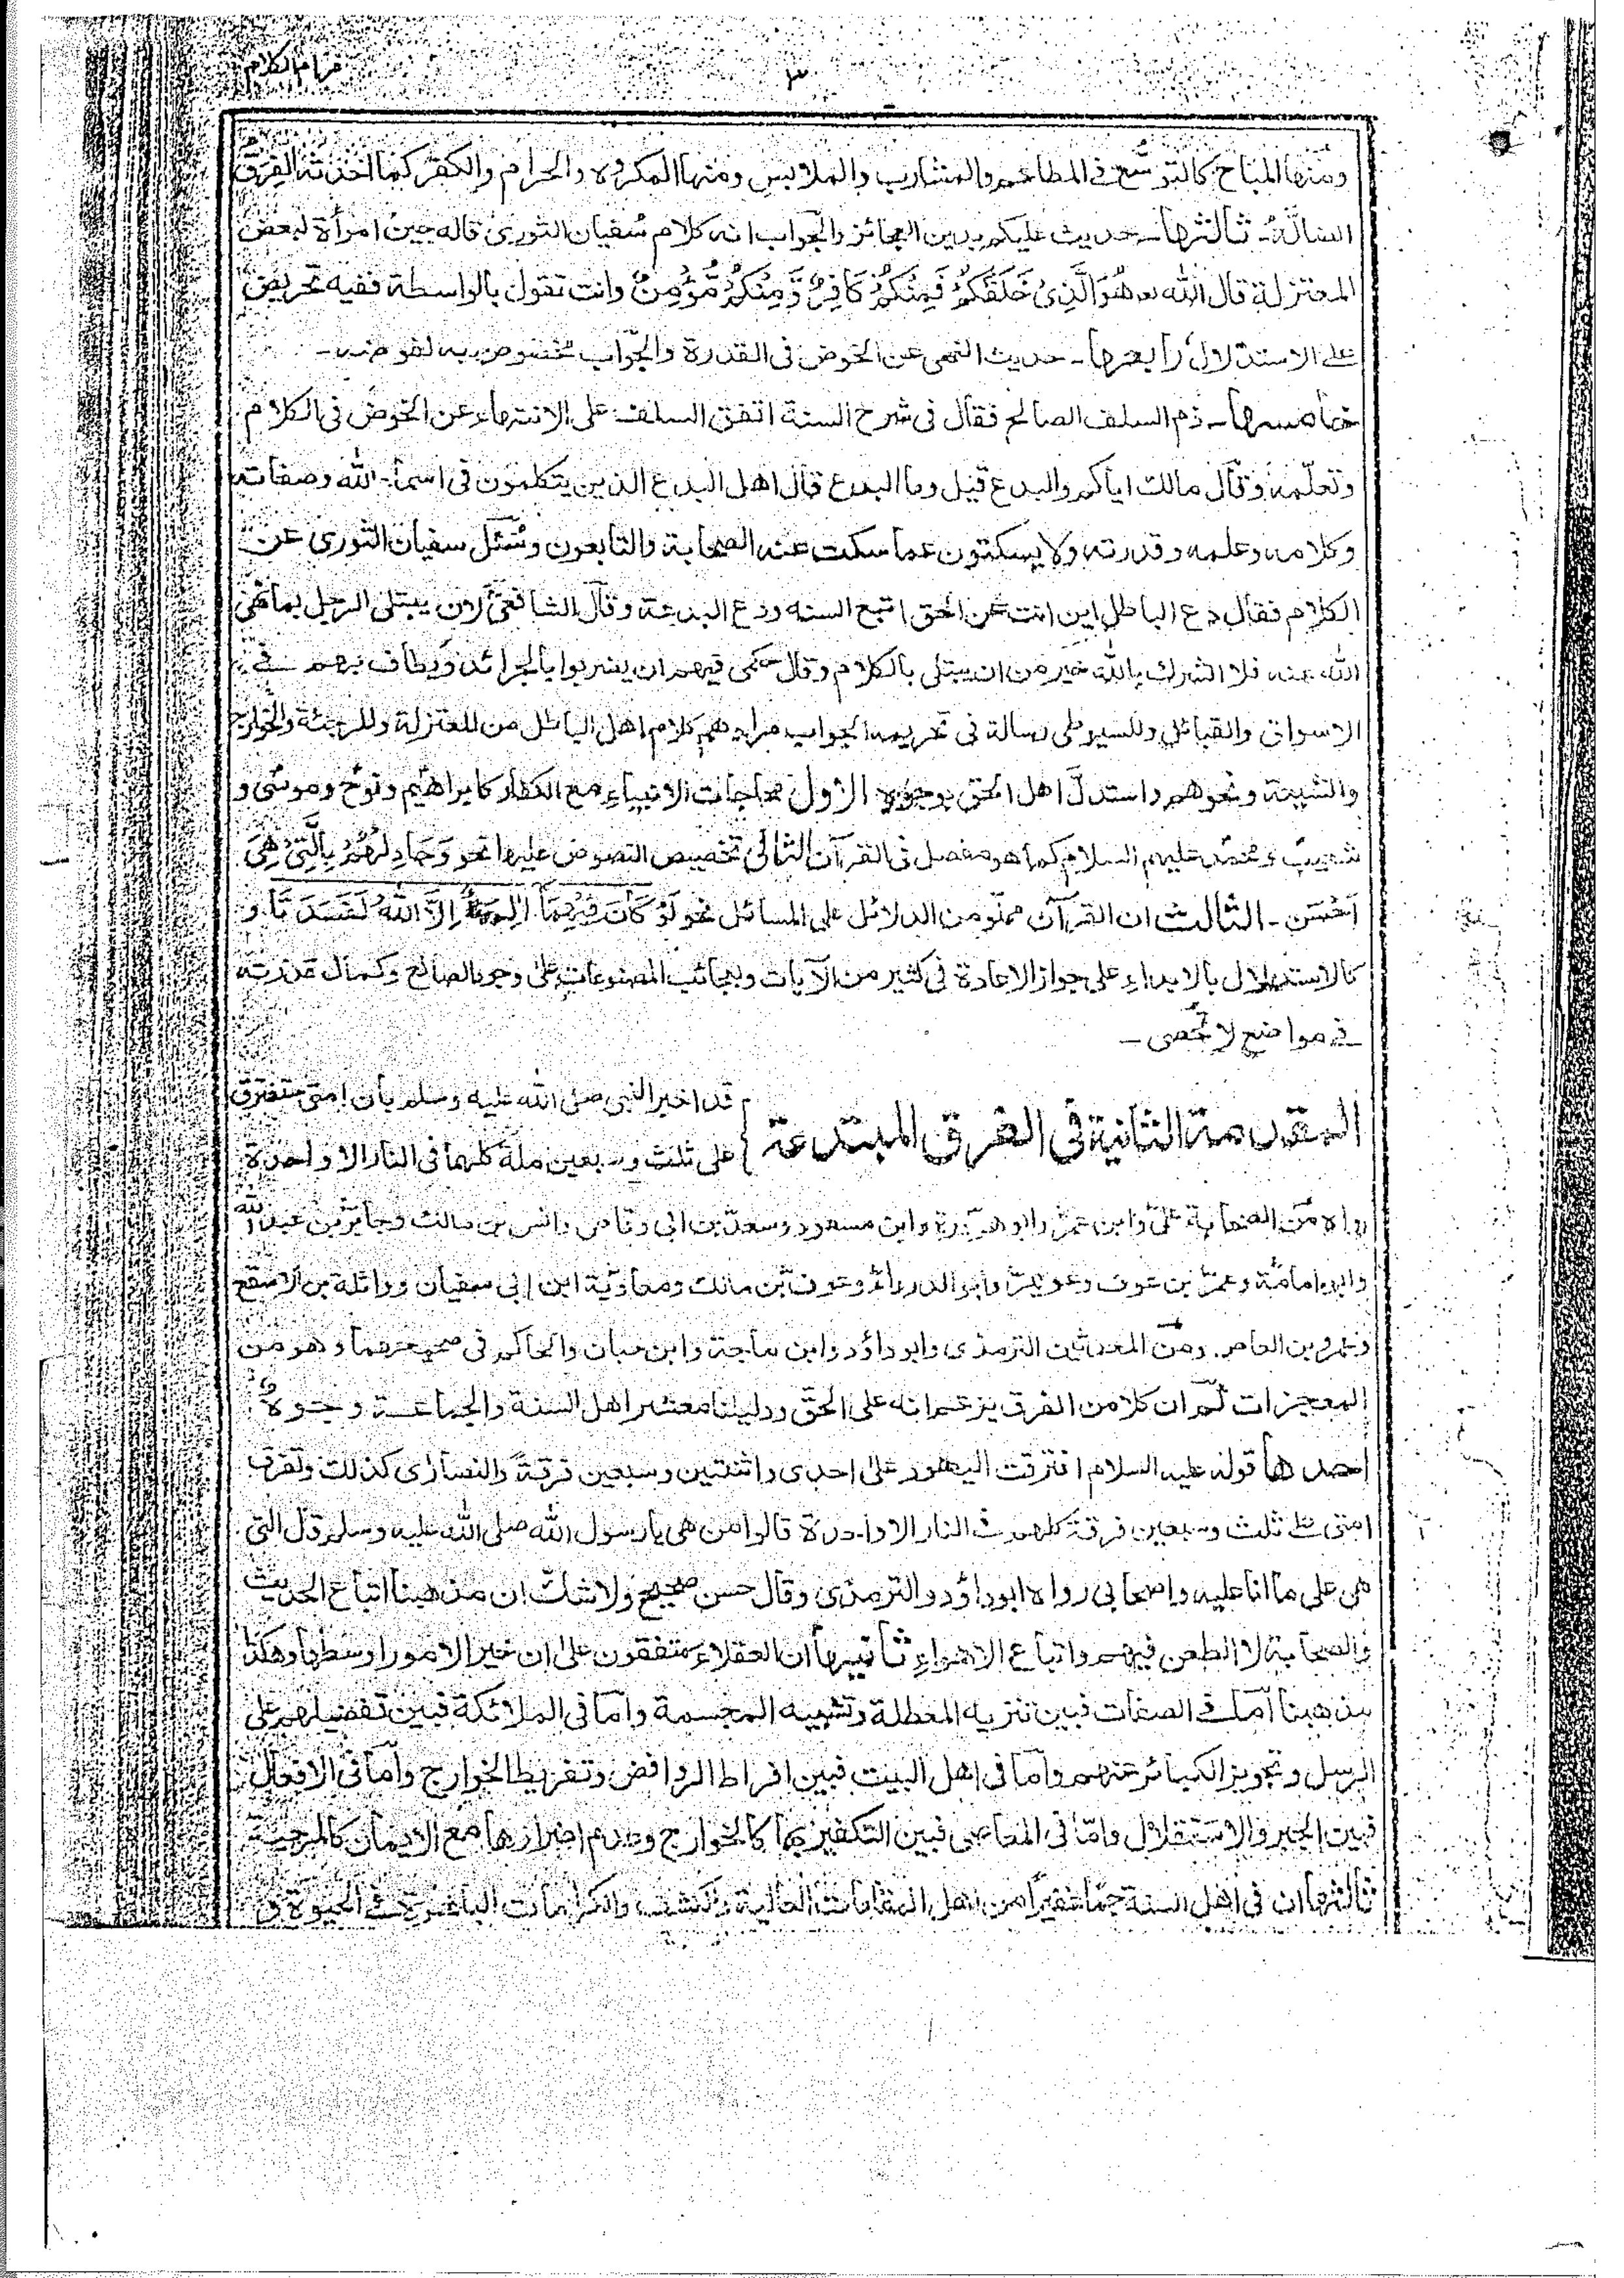 مرام الكلام
٣
ومنها المباح كالتوسّع فى المطاعم والمشارب والملابس ومنها المكروه والحرام والكفر كما اخذته الفِرَق
الضالّة۔ ثالثها۔ حديث عليكم بدين العجائز والجواب انه كلام سُفيان الثورى قاله حين امرأة لبعض
المعتزلة قال الله تع هُوَ الَّذِىْ خَلَقَكُمْ فَمِنْكُمْ كَافِرٌ وَّمِنْكُمْ مُّؤْمِنٌ وانت تقول بالواسطة ففيه تحريض
على الاستدلال رابعها۔ حديث النهى عن الخوض فى القدرة والجواب مخصوص به لغموضه۔
خامسها۔ ذم السلف الصالح فقال فى شرح السنة اتفق السلف على الانتهاء عن الخوض فى الكلام
وتعلّمه وقال مالك اياكم والبدع قيل وما البدع قال اهل البدع الذين يتكلمون فى اسماء الله وصفاته
وكلامه وعلمه وقدرته ولا يسكتون عما سكت عنه الصحابة والتابعون وسُئل سفيان الثورى عن
الكلام فقال دع الباطل اين انت عن الحق اتبع السنه ودع البدعة وقال الشافعى لان يبتلى الرجل بما نهى
الله عنه فلا الشرك بالله خير من ان يبتلى بالكلام وقال حكمى فيهم ان يضربوا بالجرائد ويطاف بهم فى
الاسواق والقبائل وللسيوطى رسالة فى تحريمه الجواب مرادهم كلام اهل الباطل من المعتزلة والمرجئة والخوارج
والشيعة ونحوهم واستدلّ اهل الحق بوجوه الاول محاجات الانبياء مع الكفار كابراهيم ونوح وموسى و
شعيب و محمد عليهم السلام كما هو مفصل فى القرآن الثانى تخصيص النصوص عليها نحو وَجَادِلْهُمْ بِالَّتِىْ هِىَ
اَحْسَن۔ الثالث ان القرآن مملو من الدلائل على المسائل نحو لَوْ كَانَ فِيْهِمَا اٰلِهَةٌ اِلَّا اللهُ لَفَسَدَتَا و
كالاستدلال بالابداء على جواز الاعادة فى كثير من الآيات وبعجائب المصنوعات على وجود الصانع وكمال قدرته
فى مواضع لا تحصى۔
المقدمة الثانية فى الفرق المبتدعة
قد اخبر النبى صلى الله عليه وسلم بان امتى ستفترق
على ثلث وسبعين ملة كلها فى النار الا واحدة
رواه من الصحابة علىّ وابن عمر وابو هريرة وابن مسعود وسعد بن ابى وقاص وانس بن مالك وجابر بن عبد الله
وابو امامة وعمرو بن عوف وعويمر وابو الدرداء وعوف بن مالك ومعاوية ابن ابى سفيان وواثلة بن الاسقع
وعمرو بن العاص. ومن المحدثين الترمذى وابو داؤد وابن ماجة وابن حبان والحاكم فى صحيحهما وهو من
المعجزات ثم ان كلا من الفرق يزعم انه على الحق ودليلنا معشر اهل السنة والجماعة وجوه
احدها قوله عليه السلام افترقت اليهود على احدى واثنتين وسبعين فرقة والنصارى كذلك وتفرق
امتى على ثلث وسبعين فرقة كلهم فى النار الا واحدة قالوا من هى يا رسول الله صلى الله عليه وسلم قال التى
هى على ما انا عليه واصحابى رواه ابو داؤد والترمذى وقال حسن صحيح ولا شك ان مذهبنا اتباع الحديث
والصحابة لا الطعن فيهم واتباع الاهواء ثانيها ان العقلاء متفقون على ان خير الامور اوسطها وهكذا
مذهبنا اما فى الصفات فبين تنزيه المعطلة وتشبيه المجسمة واما فى الملائكة فبين تفضيلهم على
الرسل وتجويز الكبائر عنهم واما فى اهل البيت فبين افراط الروافض وتفريط الخوارج واما فى الافعال
فبين الجبر والاستقلال واما فى المعاصى فبين التكفير بها كالخوارج وعدم اضرارها مع الايمان كالمرجئة
ثالثها ان فى اهل السنة جمّا غفيرا من اهل المقامات العالية والكشف والكرامات الباهرة فى الحيوة و